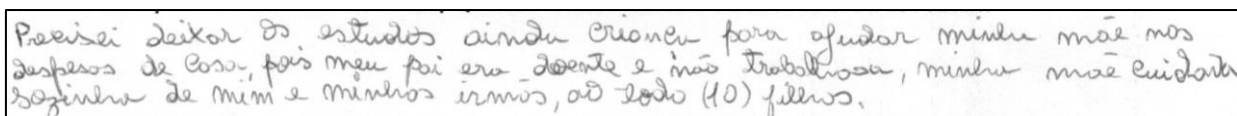 Precisei deixar os estudos ainda criança para ajudar minha mãe nas
despesas de casa, pois meu pai era doente e não trabalhava, minha mãe cuidava
sozinha de mim e minhas irmãs, ao todo (10) filhos.